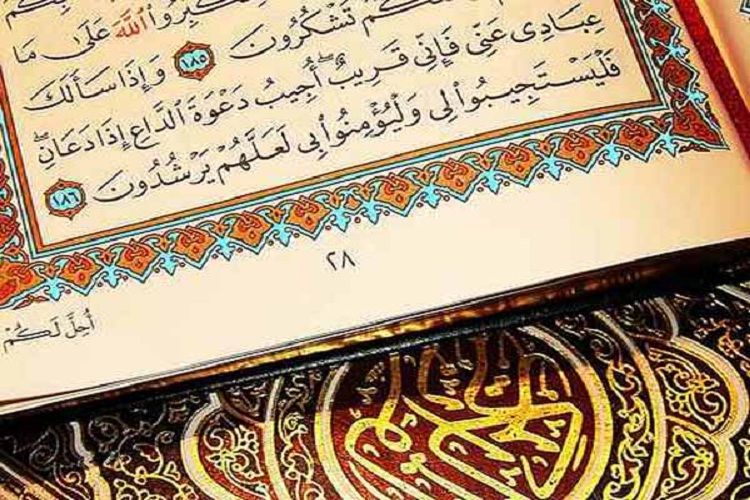 وَلِتُكَبِّرُوا۟ ٱللَّهَ عَلَىٰ مَا
تَشْكُرُونَ ١٨٥ وَإِذَا سَأَلَكَ
عِبَادِى عَنِّى فَإِنِّى قَرِيبٌۖ أُجِيبُ دَعْوَةَ ٱلدَّاعِ إِذَا دَعَانِۖ
فَلْيَسْتَجِيبُوا۟ لِى وَلْيُؤْمِنُوا۟ بِى لَعَلَّهُمْ يَرْشُدُونَ ١٨٦
٢٨
أُحِلَّ لَكُمْ